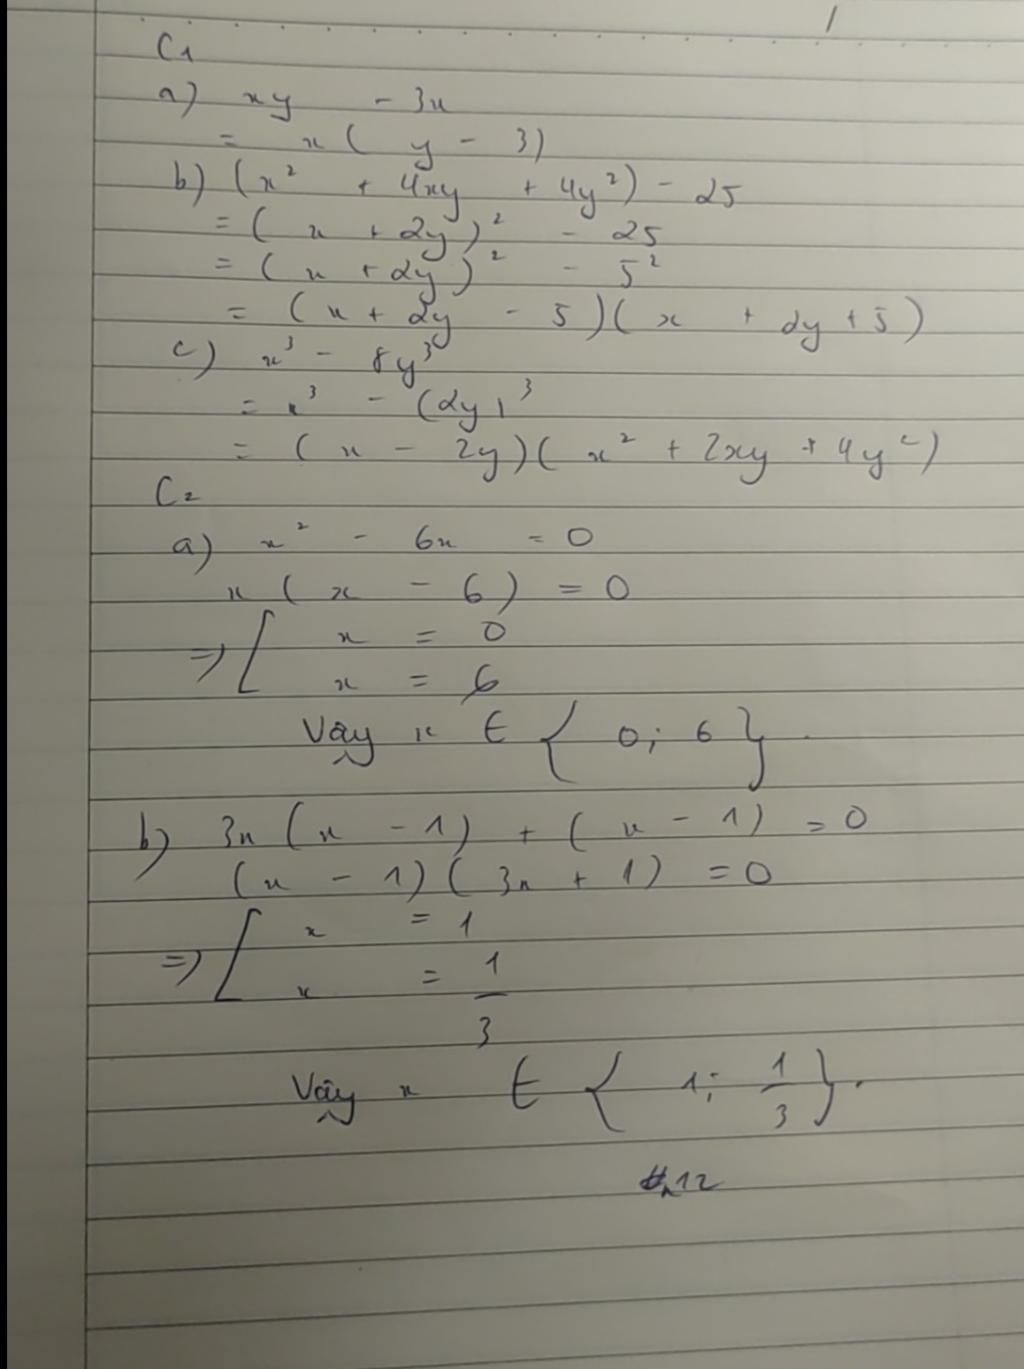 C1
a) xy - 3x
= x ( y - 3)
b) (x² + 4xy + 4y²) - 25
= ( x + 2y )² - 25
= ( x + 2y )² - 5²
= ( x + 2y - 5 ) ( x + 2y + 5 )
c) x³ - 8y³
= x³ - (2y)³
= ( x - 2y) ( x² + 2xy + 4y² )
C2
a) x² - 6x = 0
x ( x - 6 ) = 0
=> [ x = 0
x = 6
Vậy x ∈ { 0; 6 } .
b) 3x ( x - 1) + ( x - 1) = 0
( x - 1) ( 3x + 1) = 0
=> [ x = 1
x = 1/3
Vậy x ∈ { 1; 1/3 } .